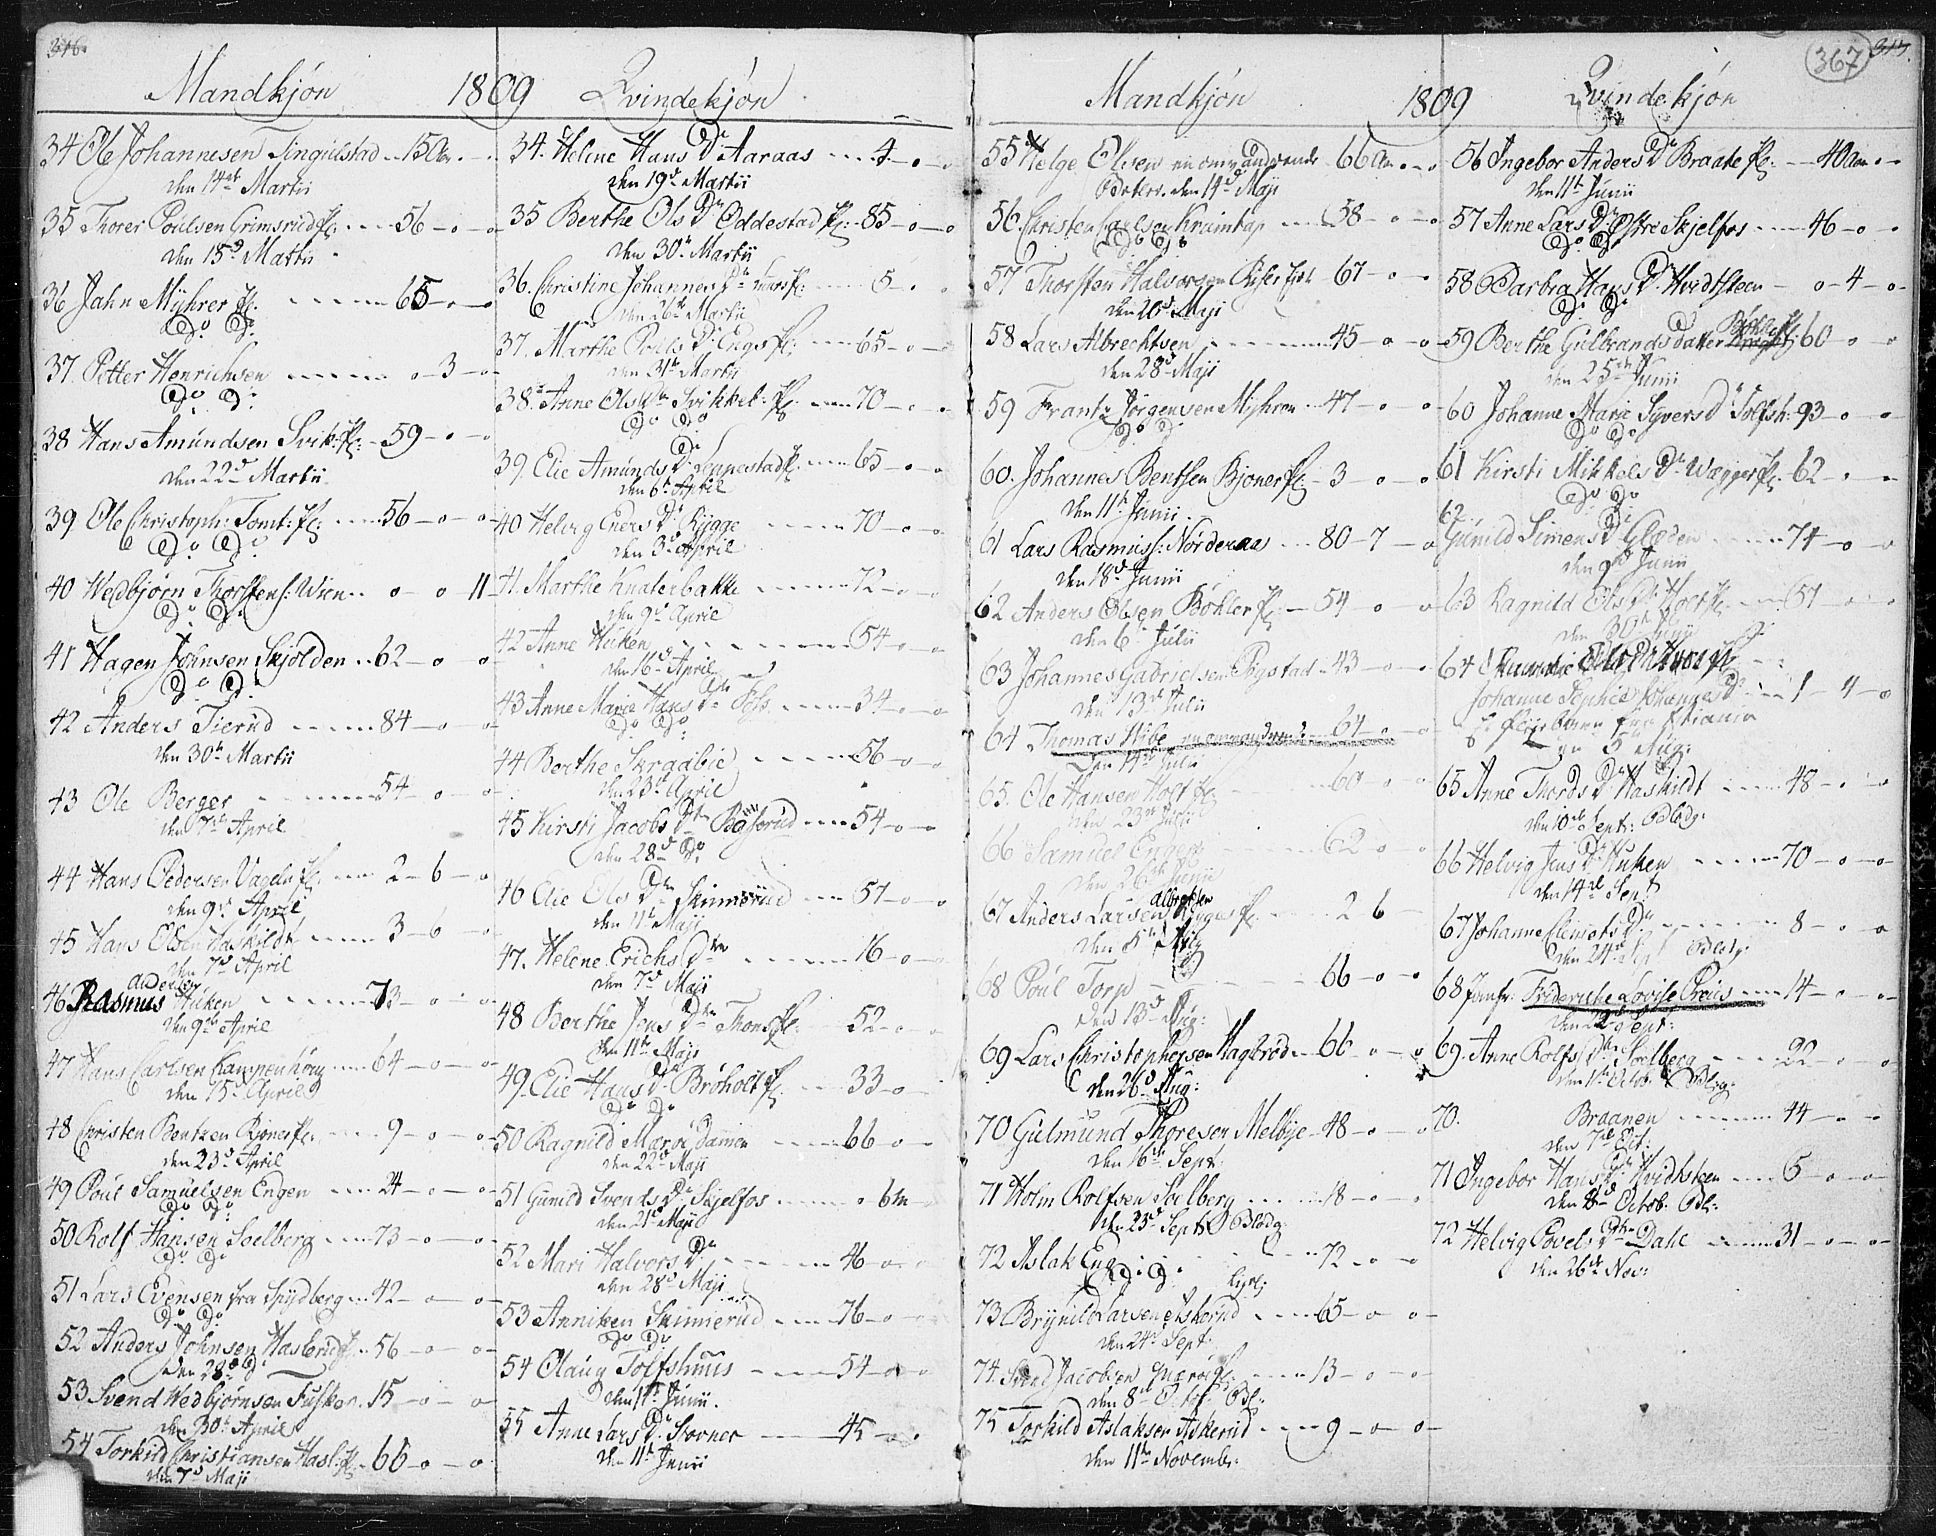 316.
Mandkjön 1809 Qvindekjön
34 Ole Johannesen Tingulstad .. 15 Aar. -
den 14de Martii
35 Thorer Poulsen Grimsrud pl: --- 56 - o - o
den 15d Martii
36 Jahn Myhrer pl: ---- 65 - o - o
do do
37. Petter Henrichsen ---- o - 3 - o
do do
38 Hans Amundsen Svik: pl: - 59 - o - o
den 22d Martii
39. Ole Christoph: Tomt: pl: --- 56 - o - o
do do
40 Wedbjörn Thorstens: Wien .. o - o 11
do do
41 Hagen Johnsen Skjolden .. 62 - o o
do do
42 Anders Tierud ----- 84 - o - o
den 30te Martii
43 Ole Berger ------ 54 - o - o
den 7de April
44 Hans Pedersen Vagel: pl: --- 2 - 6 - o
den 9de April
45 Hans Olsen Haskildt ---- 3 - 6 - o
den 7d April
46 Rasmus Andersen Huken ---- 73 - o - o
den 9de April
47 Hans Carlsen Kampenhöug --- 64 - o - o
den 15d April
48 Christen Bentzen Bjonerpl: ---- 9 - o - o
den 23d April
49 Poul Samuelsen Engen --- 24 - o - o
do do
50 Rolf Hansen Soelberg ---- 73 - o - o
do do
51 Lars Evensen fra Spydberg -- 42 - o - o
do do
52 Anders Johnsen Haslerud pl .. 56 - o o
den 28de do
53 Svend Wedbjörnsen Fusker . 15 - o - o
den 30te April
54 Torkild Christiansen Hasl: pl. - 66 - o - o
den 7d Maji
34. Helene Hans Dr Aaraas --- 4 - o - o
den 19d Martii
35 Berthe Ols Dr Oddestad pl: - 85 - o - o
den 30te Martii
36. Christine Johannes Dr pl: --- 5 - o
den 26de Martii
37. Marthe Pouls Dr Engs pl: --- 65 - o - o
den 31te Martii
38. Anne Ols Dr Svikkel. pl. ---- 70 - o - o
do do
39. Elie Amunds Dr Leppestad pl. --- 65 - o - o
den 6te April
40 Helvig Eners Dr Rygge ----- 70 - o - o
den 3d April
41. Marthe Knaterbakke ---- 72 - o - o
den 9de April
42 Anne Huken ------- 54 - o - o
den 16d April
43 Anne Marie Hans Dr Foss. ---- 34 - o - o
do do
44 Berthe Skraabie ----- 56 - o - o
den 23d April
45 Kirsti Jacobs Dr Boserud --- 54 - o - o
den 28d do
46 Elie Ols Dr Skinnerud --- 51 - o - o
den 11te Maji
47. Helene Erichs Dr ----- 16 - o - o
den 7d Maji
48 Berthe Jens Dr Thons pl: --- 52 - o - o
den 11te Maji
49. Elie Hans Dr Bröholt pl: --- 33 - o -
do do
50 Ragnild Maroe dammen ---- 66 - o - o
den 22d Maji
51 Gunild Svends Dr Skjelfos ----- o 6m
den 21de Maji
52 Mari Halvors Dr ------ 46 - o - o
den 28d Maji
53 Anniken Skinnerud ---- 76 - o - o
do do
54 Olaug Tolfshuus ---- 54 - o - o
den 1ste Junii.
55 Anne Lars Dr Stovner ---- 45 - o - o
den 11te Junii
367
317.
Mandkjön 1809 Qvindekjön
55 Helge Olsen en omvandrende 66 Aar - o
den 14d Maji
56. Christen Carlsen Krumtap --- 58 - o - o
do do
57 Thorsten Halvorsen 67 - o - o
den 20d Maji
58 Lars Albrechtsen ------ 45 - o - o
den 28de Maji
59 Frantz Jörgensen Myhren .. 47 - o - o
do do
60. Johannes Bentsen Bjoner pl: - 3 - o - o
den 11te Junii
61 Lars Rasmuss: Norderaas --- 80 - 7 - o
den 18de Junii
62 Anders Olsen Böhler pl: - 54 - o - o
den 6te Julii
63 Johannes Gabrielsen Rygstad -- 43 - o - o
den 13de Julii
64 Thomas Hibe en omvandrende 64 - o - o
den 14de Julii
65. Ole Hansen Hoet pl. ---- 60 - o - o
den 23de Julii
66 Samuel Engen ---- 62 - o - o
den 26de Julii
67 Anders Larsen Albretsen Rygge pl. --- 2 6 -
den 5te Aug
68 Poul Torp ------ 66 - o - o
den 13d Aug:
69 Lars Christophersen Hagbrod .. 66 - o - o
den 26d Aug:
70 Gulmund Thoresen Melbye - 48 - o - o
den 16de Sept:
71 Holm Rolfsen Soelberg ---- 18 - o - o
den 23d Septb Blodg:
72 Aslak Eng ------ 72 - o - o
do do
73 Brynild Larsen Askerud ---- 65 - o - o
den 24de Sept:
74. Svend Jacobsen ---- 13 - o - o
den 8de Octob: Bl:
75 Torkild Aslaksen Askerud --- 9 - o - o
den 11te Novembr:
56 Ingebor Anders Dr Braate pl: --- 40 Aar - o
den 11te Junii
57 Anne Lars Dr Östre Skjelfos --- 46 - o - o
do do
58 Barbra Hans Dr Hvidtsteen - o - 4 - o
do do
59 Berthe Gulbrands datter Böhler pl 60 - o - o
den 25de Junii
60 Johanne Marie Syvers Dr Tolfsh: 93 - o - o
do do
61 Kirsti Mikkels Dr Wegger pl: 62 - o - o
do do
62
Gunild Simens Dr Gloden ---- 74 - o - o
den 9d Junii
63 Ragnild Ols Dr Hoet pl. --- 51 - o - o
den 30te Julii
64
Johanne Sophie Johannes Dr -- 1 - 4 - o
Et Pleiebarn fra Xtiania
den 5te Aug:
65 Anne Thords Dr Haskildt ---- 48 - o - o
den 10de Sept: Blodg:
66 Helvig Jens Dr Huken ---- 70 - o - o
den 14de Sept
67 Johanne Clemets Dr ------ 8 - o - o
den 24de Sept Blodg:
68 Jomfr: Frideriche Lovise Preus --- 14 - o - o
den 22de Sept:
69. Anne Rolfs Dr Soelberg ---- 22 - o - o
den 1ste Octob: Blodg:
70. Braanen ---- 44 - o - o
den 7de Oct:
71 Ingebor Hans Dr Hvidtsteen ---- 5 - o - o
den 8de Octob. Bl:
72 Helvig Povels Dr Dahl ----- 31 - o - o
den 26de Nov: